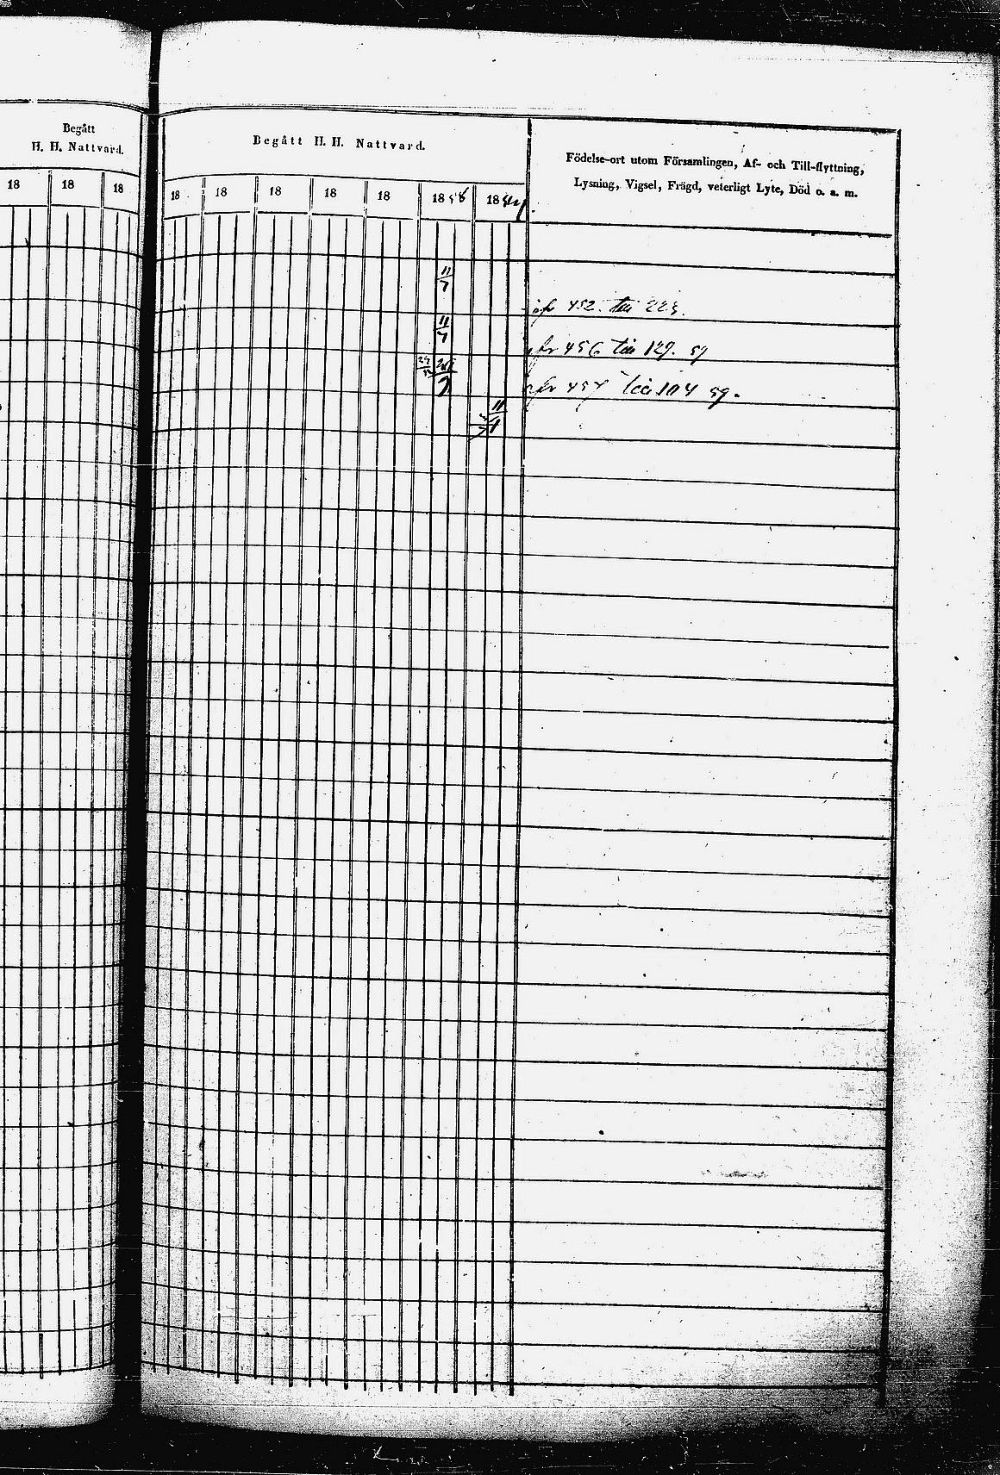 Begått
H. H. Nattvard.
18 18 18
Begått H. H. Nattvard.
18 18 18 18 18 1858 18
Födelse-ort utom Församlingen, Af- och Till-flyttning,
Lysning, Vigsel, Frägd, veterligt Lyte, Död o. s. m.
11/7
fr 452. till 223.
11/7
fr 456 till 127. 59
fr 457 till 104 59.
11